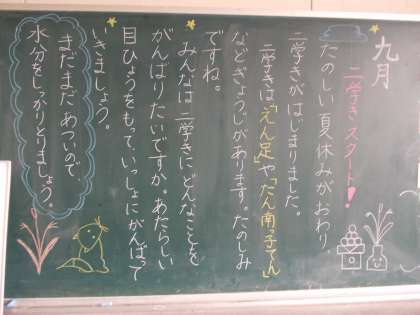 九月
二学きスタート!
たのしい夏休みがおわり、
二学きがはじまりました。
二学きは「えん足」や「だん南っ子てん」
などぎょうじがあります。たのしみ
ですね。
みんなは二学きにどんなことを
がんばりたいですか。あたらしい
目ひょうをもって、いっしょにがんばって
いきましょう。
まだまだあついので、
水分をしっかりとりましょう。